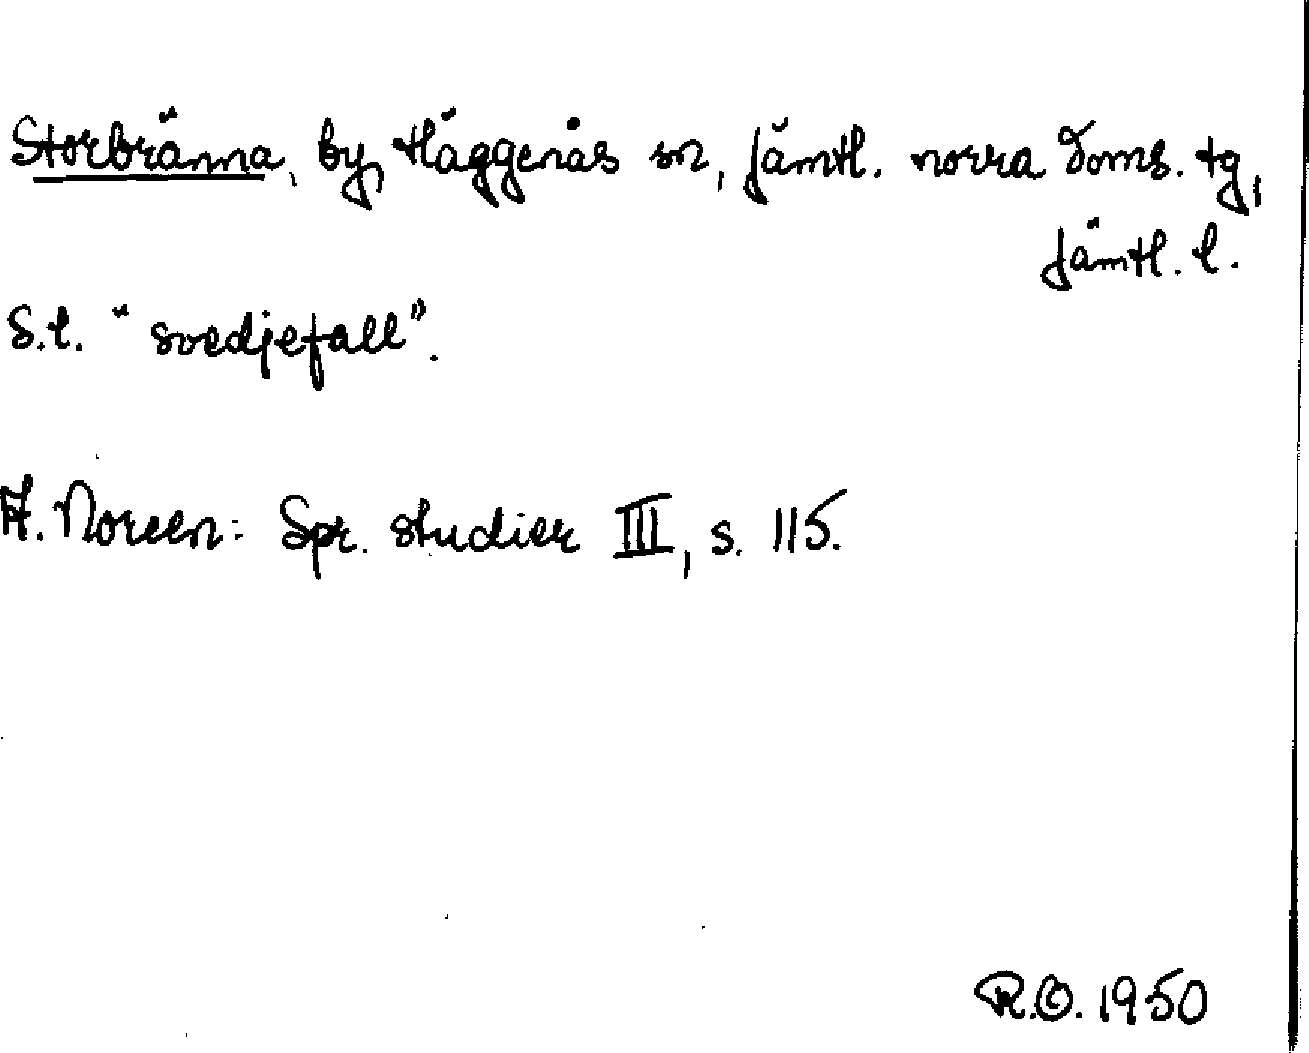 Storbränna, by, Häggenås sn, Jämtl. norra doms. tg,
Jämtl. l.
S.l. "svedjefall".
A. Noreen: Spr. studier III, s. 115.
R.O. 1950